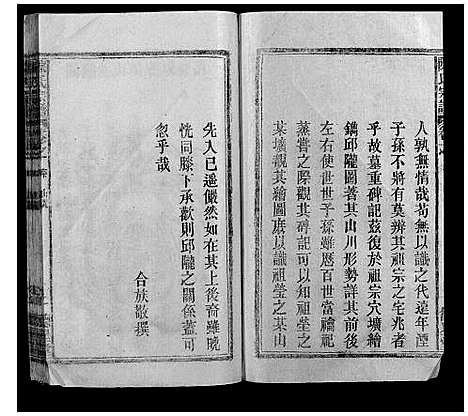 人孰無情哉苟無以識之代遠年湮
子孫不將有莫辨其祖宗之宅兆者
乎故墓重碑記茲復於祖宗穴壙繪
鐫邱隴圖著其山川形勢詳其前後
左右使世世子孫雖歷百世當禴祀
蒸嘗之際觀其碑記可以知祖宗之
某墳觀其繪圖庶以識祖塋之某山
先人已遥儼然如在其上後裔雖
恍同膝下承歡則邱隴之關係蓋可
忽乎哉
合族敬撰